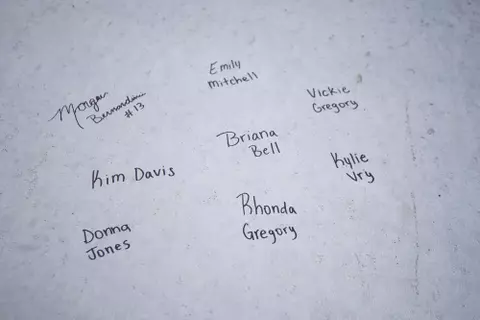 Emily
Mitchell
Morgan
#13
Vickie
Gregory
Briana
Bell
Kylie
Vry
Kim Davis
Rhonda
Gregory
Donna
Jones